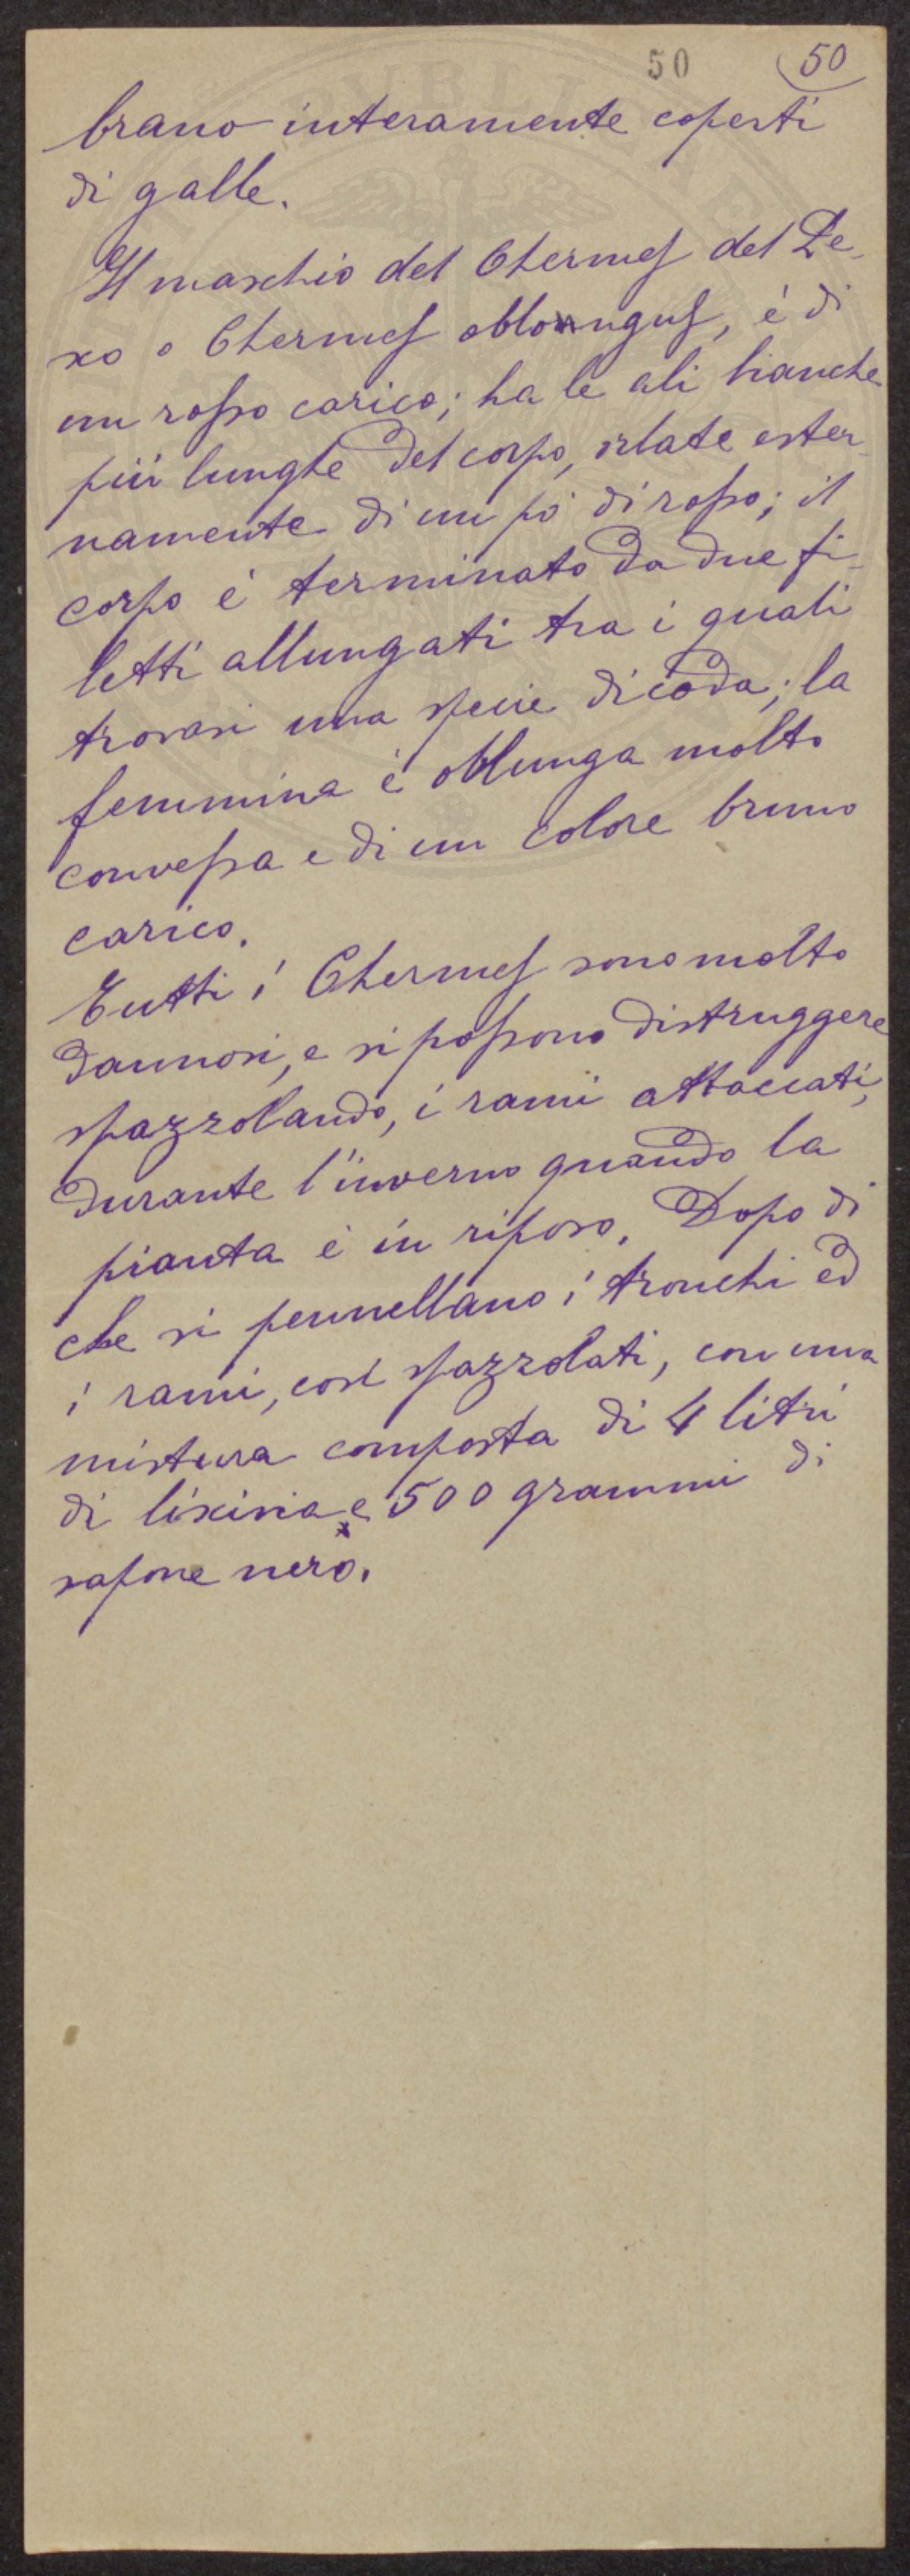 50 50
brano interamente coperti
di galle.
Il maschio del Chermes del Pe-
xo o Chermes oblongus, è di
un rosso carico; ha le ali bianche
più lunghe del corpo, orlate ester-
namente di un pò di rosso; il
corpo è terminato da due fi-
letti allungati tra i quali
trovasi una specie di coda; la
femmina è oblunga molto
convessa e di un colore bruno
carico.
Tutti i Chermes sono molto
dannosi, e si possono distruggere
spazzolando, i rami attaccati,
durante l'inverno quando la
pianta è in riposo. Dopo di
che si pennellano i tronchi ed
i rami, così spazzolati, con una
mistura composta di 4 litri
di lixivia e 500 grammi di
sapone nero.